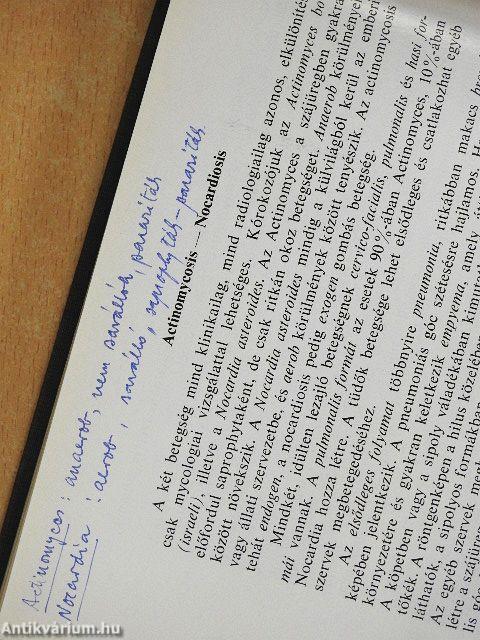 Actinomyces: anaerob, nem saválló, parasiták
Nocardia : aerob, saválló, saprophyták-parasiták
Actinomycosis — Nocardiosis
A két betegség mind klinikailag, mind radiologiailag azonos, elkülönítés
csak mycologiai vizsgálattal lehetséges. Kórokozójuk az Actinomyces bo
(israeli), illetve a Nocardia asteroides. Az Actinomyces a szájüregben gyakra
előfordul saprophytaként, de csak ritkán okoz betegséget. Anaerob körülmények
között növekszik. A Nocardia asteroides mindig a külvilágból kerül az emberi
vagy állati szervezetbe, és aerob körülmények között tenyészik. Az actinomycosis
tehát endogen, a nocardiosis pedig exogen gombás betegség.
Mindkét, idülten lezajló betegségnek cervico-facialis, pulmonalis és hasi for-
mái vannak. A pulmonalis formát az esetek 90%-ában Actinomyces, 10%-ában
Nocardia hozza létre. A tüdők betegsége lehet elsődleges és csatlakozhat egyéb
szervek megbetegedéséhez.
Az elsődleges folyamat többnyire pneumonia, ritkábban makacs
képében jelentkezik. A pneumoniás góc szétesésre hajlamos.
környezetére és gyakran keletkezik empyema, amely
A köpetben vagy a sipoly váladékában kimutat
tőkék. A röntgenképen a hilus közelében
láthatók, a sipolyos formákban
Az egyéb szervek
létre a szájüreg
lis góc
Antikvárium.hu